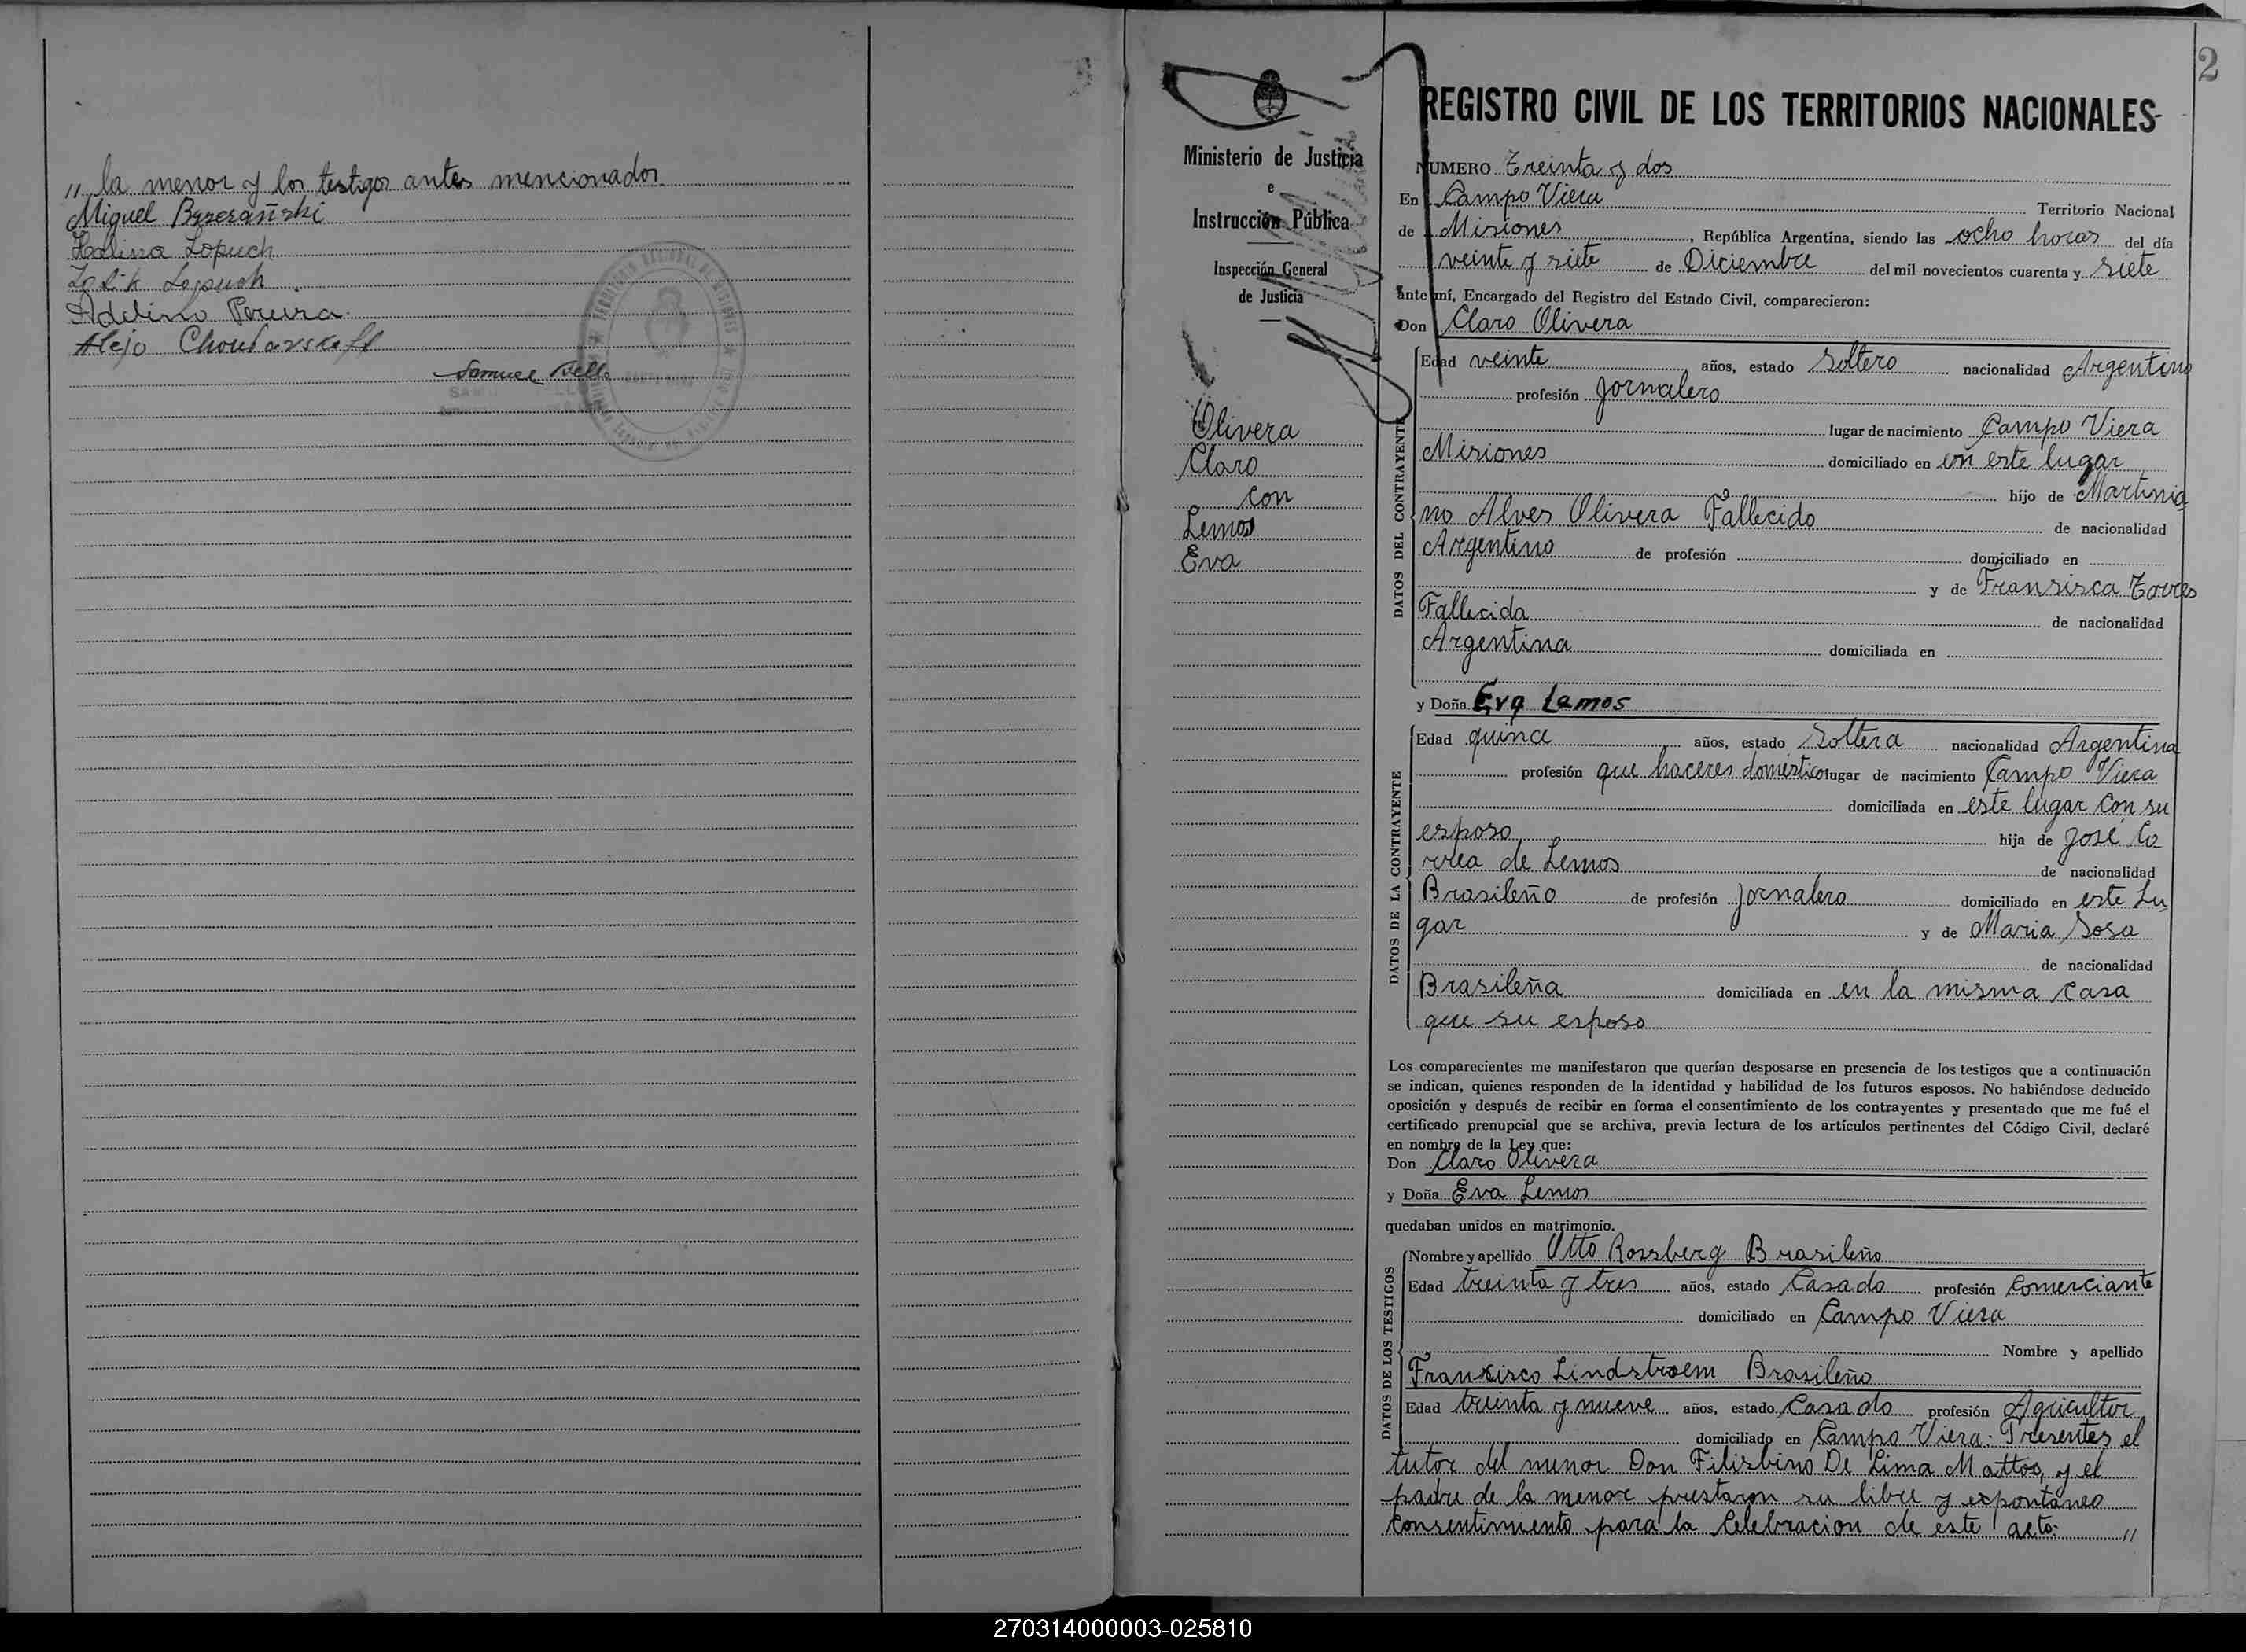 " la menor y los testigos antes mencionados
Miguel Brzezański
Halina Lopuch
Lopuch
Adelino Pereira
Alejo
Samuel
2
Ministerio de Justicia
e
Instrucción Pública
Inspección General
de Justicia
Olivera
Claro
con
Lemos
Eva
REGISTRO CIVIL DE LOS TERRITORIOS NACIONALES
NUMERO Treinta y dos
En Campo Viera Territorio Nacional
de Misiones, República Argentina, siendo las ocho horas del día
veinte y siete de Diciembre del mil novecientos cuarenta y siete
ante mí, Encargado del Registro del Estado Civil, comparecieron:
Don Claro Olivera
DATOS DEL CONTRAYENTE
Edad veinte años, estado Soltero nacionalidad Argentino
profesión Jornalero
lugar de nacimiento Campo Viera
Misiones domiciliado en en este lugar
hijo de Martinia
no Alves Olivera Fallecido de nacionalidad
Argentino de profesión domiciliado en
y de Fransisca Torres
Fallecida de nacionalidad
Argentina domiciliada en
y Doña Eva Lemos
DATOS DE LA CONTRAYENTE
Edad quince años, estado Soltera nacionalidad Argentina
profesión que haceres domestico lugar de nacimiento Campo Viera
domiciliada en este lugar con su
esposo hija de José Co
rrea de Lemos de nacionalidad
Brasileño de profesión Jornalero domiciliado en este Lu
gar y de Maria Sosa
de nacionalidad
Brasileña domiciliada en en la misma casa
que su esposo
Los comparecientes me manifestaron que querían desposarse en presencia de los testigos que a continuación
se indican, quienes responden de la identidad y habilidad de los futuros esposos. No habiéndose deducido
oposición y después de recibir en forma el consentimiento de los contrayentes y presentado que me fué el
certificado prenupcial que se archiva, previa lectura de los artículos pertinentes del Código Civil, declaré
en nombre de la Ley que:
Don Claro Olivera
y Doña Eva Lemos
quedaban unidos en matrimonio.
DATOS DE LOS TESTIGOS
Nombre y apellido Otto Rossberg Brasileño
Edad treinta y tres años, estado Casado profesión Comerciante
domiciliado en Campo Viera
Nombre y apellido
Fransisco Lindstroem Brasileño
Edad treinta y nueve años, estado Casado profesión Agricultor
domiciliado en Campo Viera. Presentes el
tutor del menor Don Filisbino De Lima Mattos, y el
padre de la menor prestaron su libre y expontaneo
consentimiento para la Celebracion de este acto. "
270314000003-025810